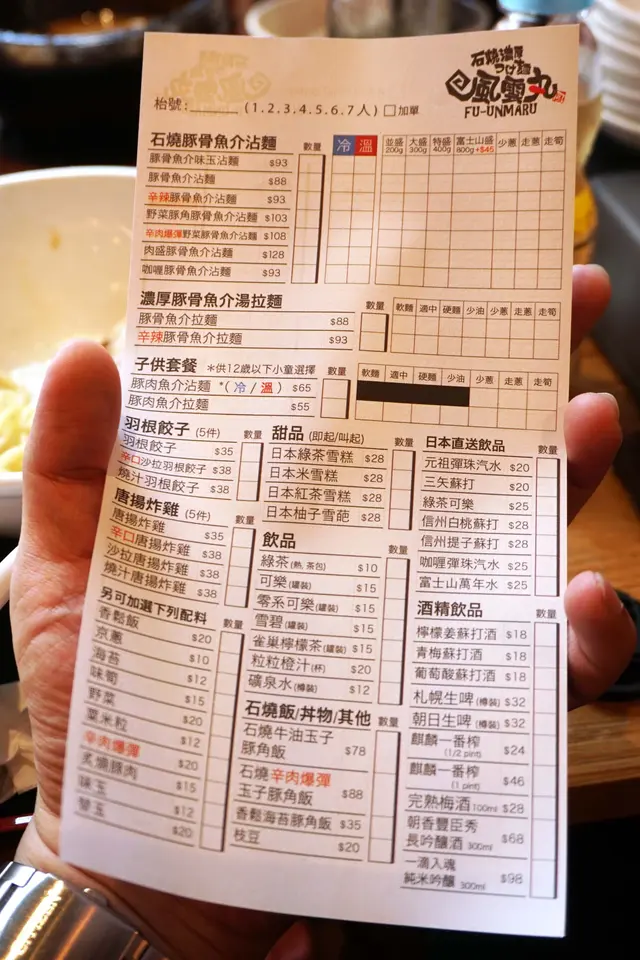 石燒濃厚
つけ麵
風雲丸
FU-UNMARU
枱號:______ (1.2.3.4.5.6.7人) □加單
石燒豚骨魚介沾麵 數量 冷 溫 並盛 200g 大盛 300g 特盛 400g 富士山盛 800g +$45 少蔥 走蔥 走筍
豚骨魚介味玉沾麵 $93
豚骨魚介沾麵 $88
辛辣豚骨魚介沾麵 $93
野菜豚角豚骨魚介沾麵 $103
辛肉爆彈野菜豚骨魚介沾麵 $108
肉盛豚骨魚介沾麵 $128
咖喱豚骨魚介沾麵 $93
濃厚豚骨魚介湯拉麵 數量 軟麵 適中 硬麵 少油 少蔥 走蔥 走筍
豚骨魚介拉麵 $88
辛辣豚骨魚介拉麵 $93
子供套餐 *供12歲以下小童選擇 數量 軟麵 適中 硬麵 少油 少蔥 走蔥 走筍
豚肉魚介沾麵 *(冷/溫) $65
豚肉魚介拉麵 $55
羽根餃子 (5件) 數量
羽根餃子 $35
辛口沙拉羽根餃子 $38
燒汁羽根餃子 $38
唐揚炸雞 (5件) 數量
唐揚炸雞 $35
辛口唐揚炸雞 $38
沙拉唐揚炸雞 $38
燒汁唐揚炸雞 $38
另可加選下列配料 數量
香鬆飯 $20
京蔥 $10
海苔 $12
味筍 $15
野菜 $20
粟米粒 $12
辛肉爆彈 $20
炙燒豚肉 $15
味玉 $12
替玉 $20
甜品 (即起/叫起) 數量
日本綠茶雪糕 $28
日本米雪糕 $28
日本紅茶雪糕 $28
日本柚子雪葩 $28
飲品 數量
綠茶 (熱, 茶包) $10
可樂 (罐裝) $15
零系可樂 (罐裝) $15
雪碧 (罐裝) $15
雀巢檸檬茶 (罐裝) $15
粒粒橙汁 (杯) $20
礦泉水 (樽裝) $12
石燒飯/丼物/其他 數量
石燒牛油玉子
豚角飯 $78
石燒辛肉爆彈
玉子豚角飯 $88
香鬆海苔豚角飯 $35
枝豆 $20
日本直送飲品 數量
元祖彈珠汽水 $20
三矢蘇打 $20
綠茶可樂 $25
信州白桃蘇打 $28
信州提子蘇打 $28
咖喱彈珠汽水 $25
富士山萬年水 $25
酒精飲品 數量
檸檬姜蘇打酒 $18
青梅蘇打酒 $18
葡萄酸蘇打酒 $18
札幌生啤 (樽裝) $32
朝日生啤 (樽裝) $32
麒麟一番榨
(1/2 pint) $24
麒麟一番榨
(1 pint) $46
完熟梅酒 100ml $28
朝香豐臣秀
長吟釀酒 300ml $68
一滴入魂
純米吟釀 300ml $98